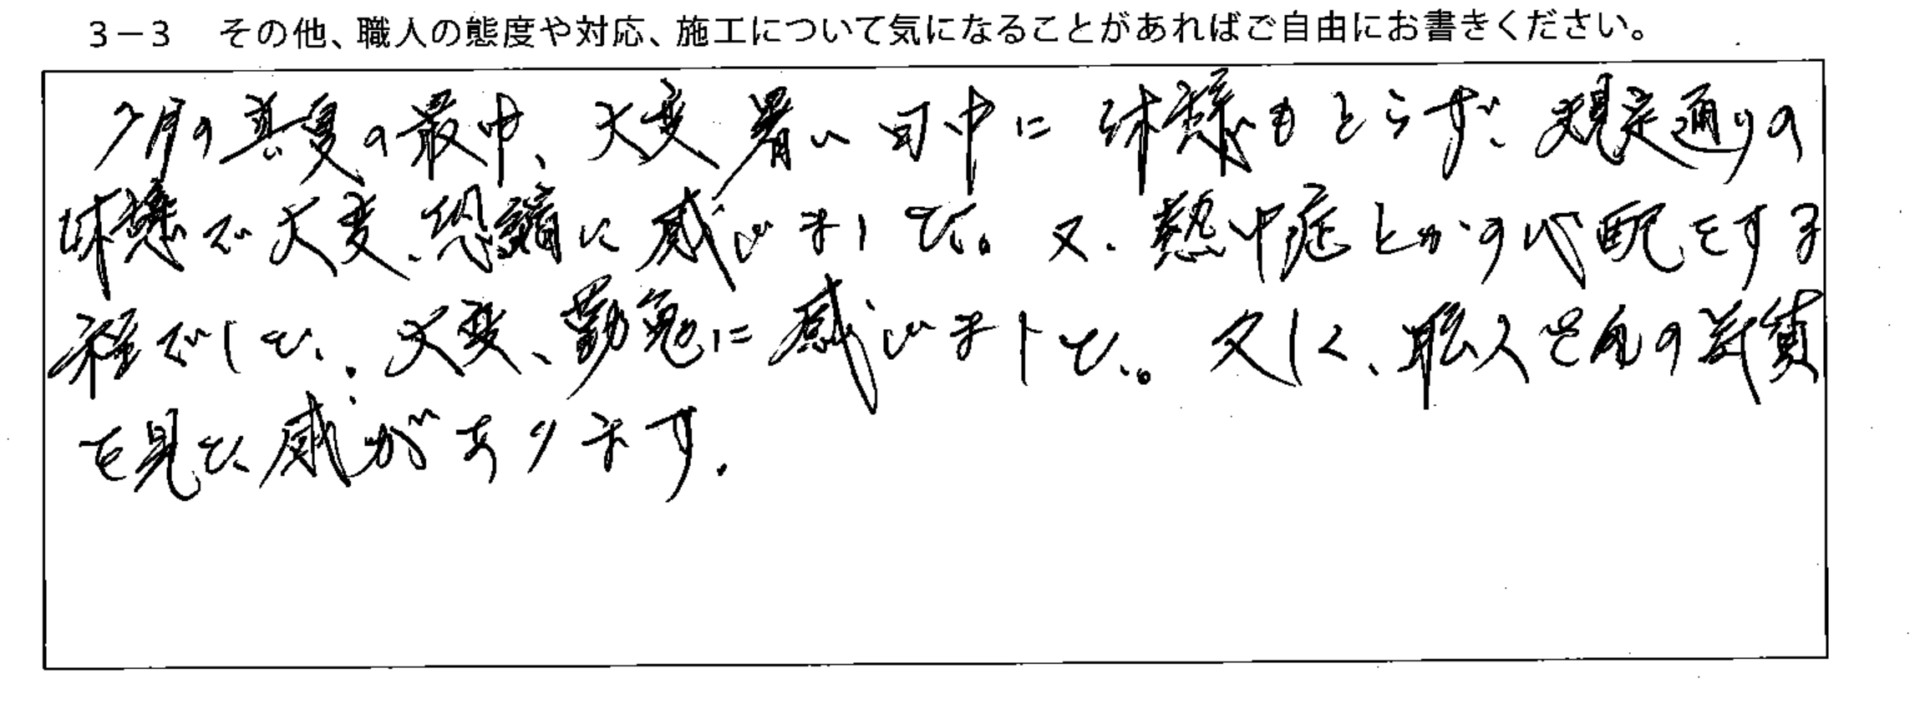 3－3　その他、職人の態度や対応、施工について気になることがあればご自由にお書きください。
7月の真夏の最中、大変暑い日中に休憩もとらず、規定通りの
休憩で大変、恐縮に感じました。又、熱中症とかの心配をする
程でした。大変、勤勉に感じました。久しく、職人さんの気質
を見た感があります。